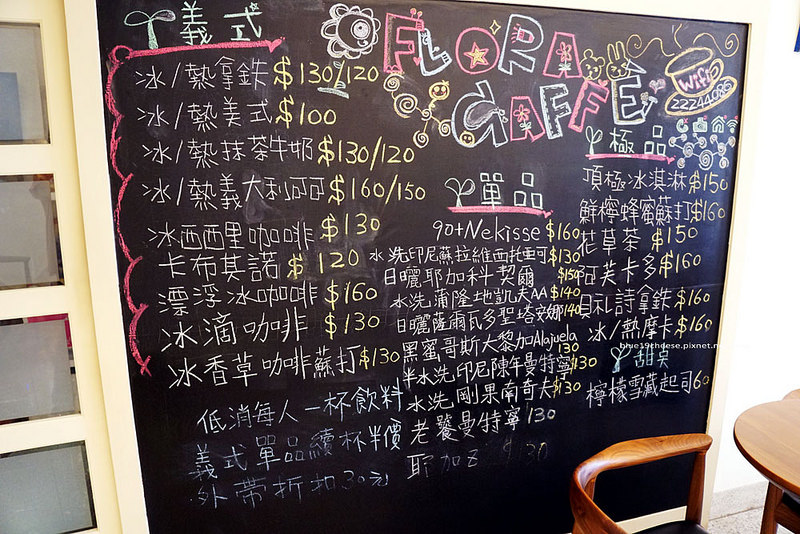 FLORA
CAFFE
wifi
22244086
義式
冰/熱拿鉄 $130/120
冰/熱美式 $100
冰/熱抹茶牛奶 $130/120
冰/熱義大利阿阿 $160/150
冰西西里咖啡 $130
卡布其諾 $120
漂浮冰咖啡 $160
冰滴咖啡 $130
冰香草咖啡蘇打 $130
低消每人一杯飲料
義式單品續杯半價
外帶折扣30元
單品
90+Nekisse $160
水洗印尼蘇拉維西托拉可 $130
日曬耶加科契爾 $150
水洗蒲隆地凱夫AA $140
日曬薩爾瓦多聖塔安娜 140
黑蜜哥斯大黎加Alajuela 130
半水洗印尼陳年曼特寧 130
水洗剛果南奇夫 $130
老饕曼特寧 130
耶加 $130
極品
頂極冰淇淋 $150
鮮檸蜂蜜蘇打 $160
花草茶 $150
阿芙卡多 $160
貝禮詩拿鉄 $160
冰/熱摩卡 $160
甜點
檸檬雪藏起司 60
blue19cheese.pixnet.net